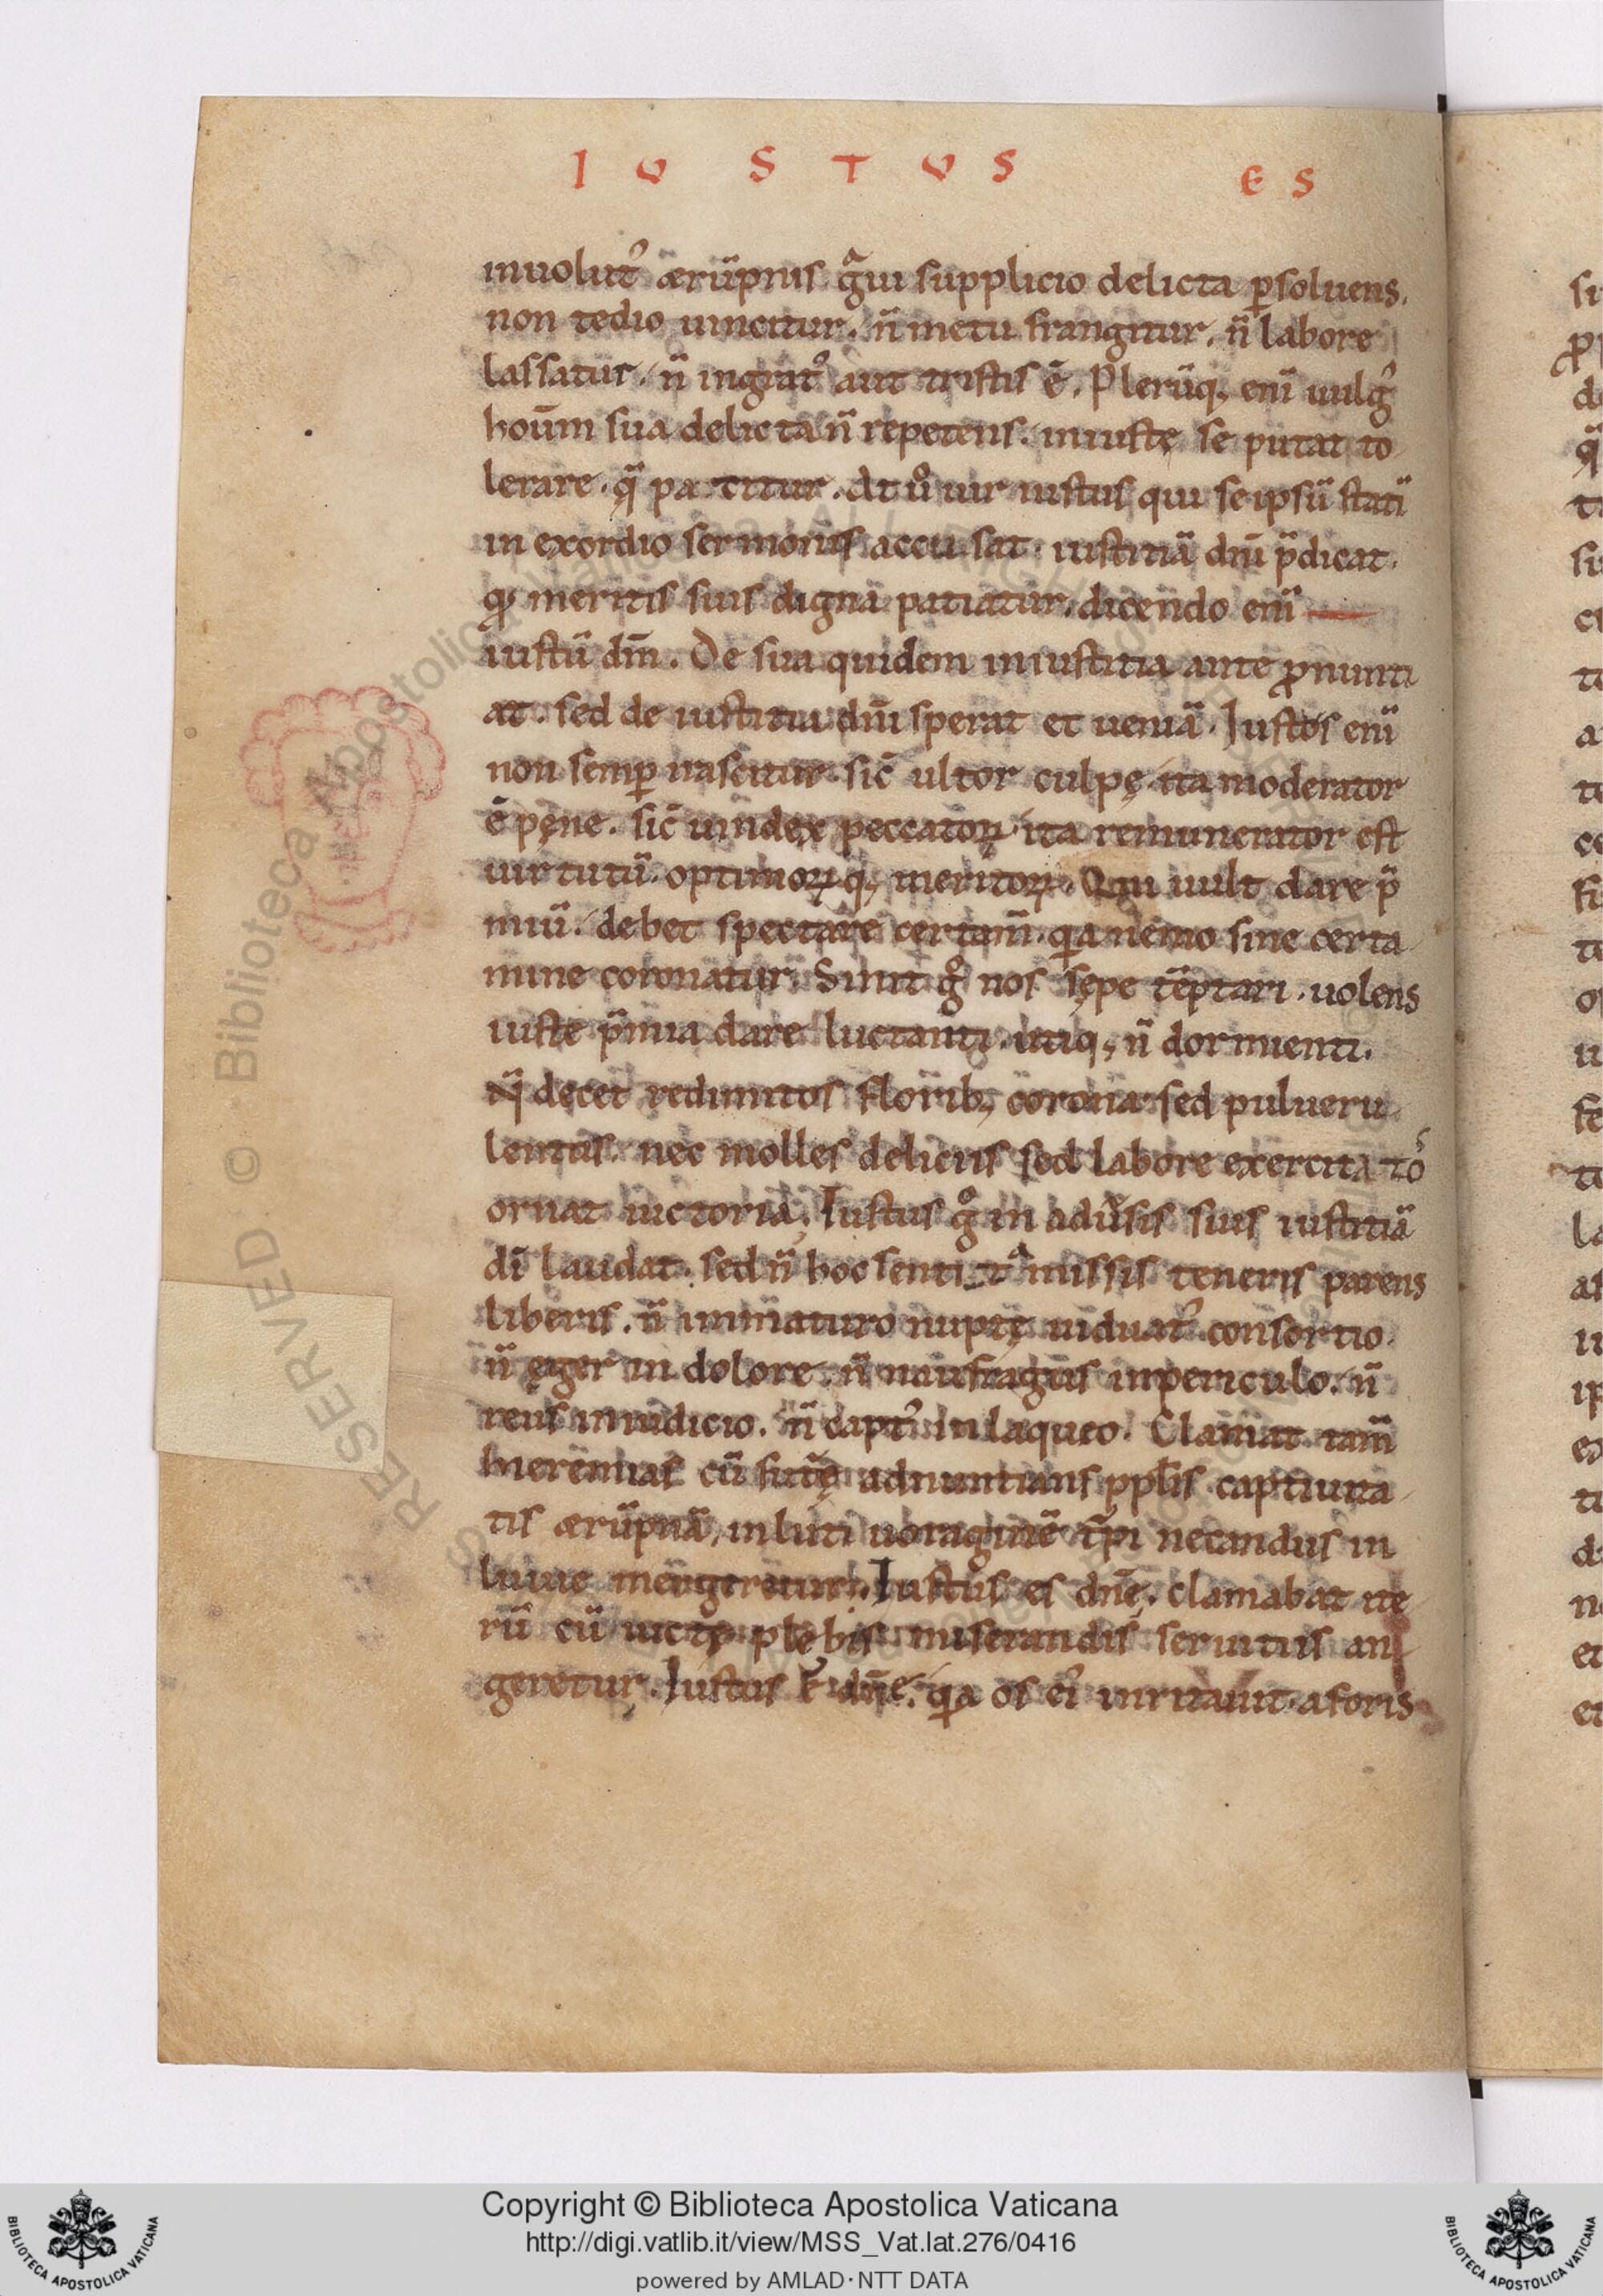 IUSTUS ES
inuolut᾽ ærũpnis g̃ui supplicio delicta ꝑsoluens.
non tedio uincitur. ñ metu frangitur. ñ labore
lassatur. ñ ingrat᾽ aut tristis ē. Plerũq; eni̅ uulg᾽
hoūm sua delicta ñ repetens. iniustę se putat to
lerare. q̃ patitur. At u᾽ uir iustus qui se ipsũ stati̅
in exordio sermonis accusat. iustitiã dn̄i p̃dicat.
qđ meritis suis digna patiatur. dicendo eni̅
iustũ dn̄m. De sua quidem iniustitia ante ꝓnunti
at. sed de iustitia dn̄i sperat et ueniã. Iustos eni̅
non semꝑ irascitur. sic̄ ultor culpę ita moderator
ē pęne. sic̄ uindex peccatoꝝ. ita remunerator est
uirtutũ. optimoꝝq; meritoꝝ. Qui uult dare p̃
miũ. debet spectare certam̄. q̱a nemo sine certa
mine coronatur. Sinit g᾽ nos sępe tẽptari. uolens
iuste p̃mia dare luctanti. utiq; ñ dormienti.
Ñ decet redimitos florib; corona. sed pulueru
lentus. nec molles deliciis sed labore exercitatos
ornat uictoria. Iustus g᾽ in adũsis suis iustitiã
di̅ laudat. sed ñ hoc sentit amissis teneris parens
liberis. ñ immaturo nuptę uiduat᾽ consortio.
ñ ęger in dolore. ñ naufragus in periculo. ñ
reus in iudicio. ñ capt᾽ in laqueo. Clamat tam̄
hieremias cũ adnuntians pplis captiuita
tis ærũpnã, in luti uoraginē necandus in
luuie mergeretur. Iustus es dn̄ę. clamabat ite
rũ cũ uictę plebis miserandis seruitiis an
geretur. Iustus ē dn̄ę. q̱a os ei᾽ inritaui. aforis
Copyright © Biblioteca Apostolica Vaticana
http://digi.vatlib.it/view/MSS_Vat.lat.276/0416
powered by AMLAD·NTT DATA
BIBLIOTECA APOSTOLICA VATICANA
BIBLIOTECA APOSTOLICA VATICANA